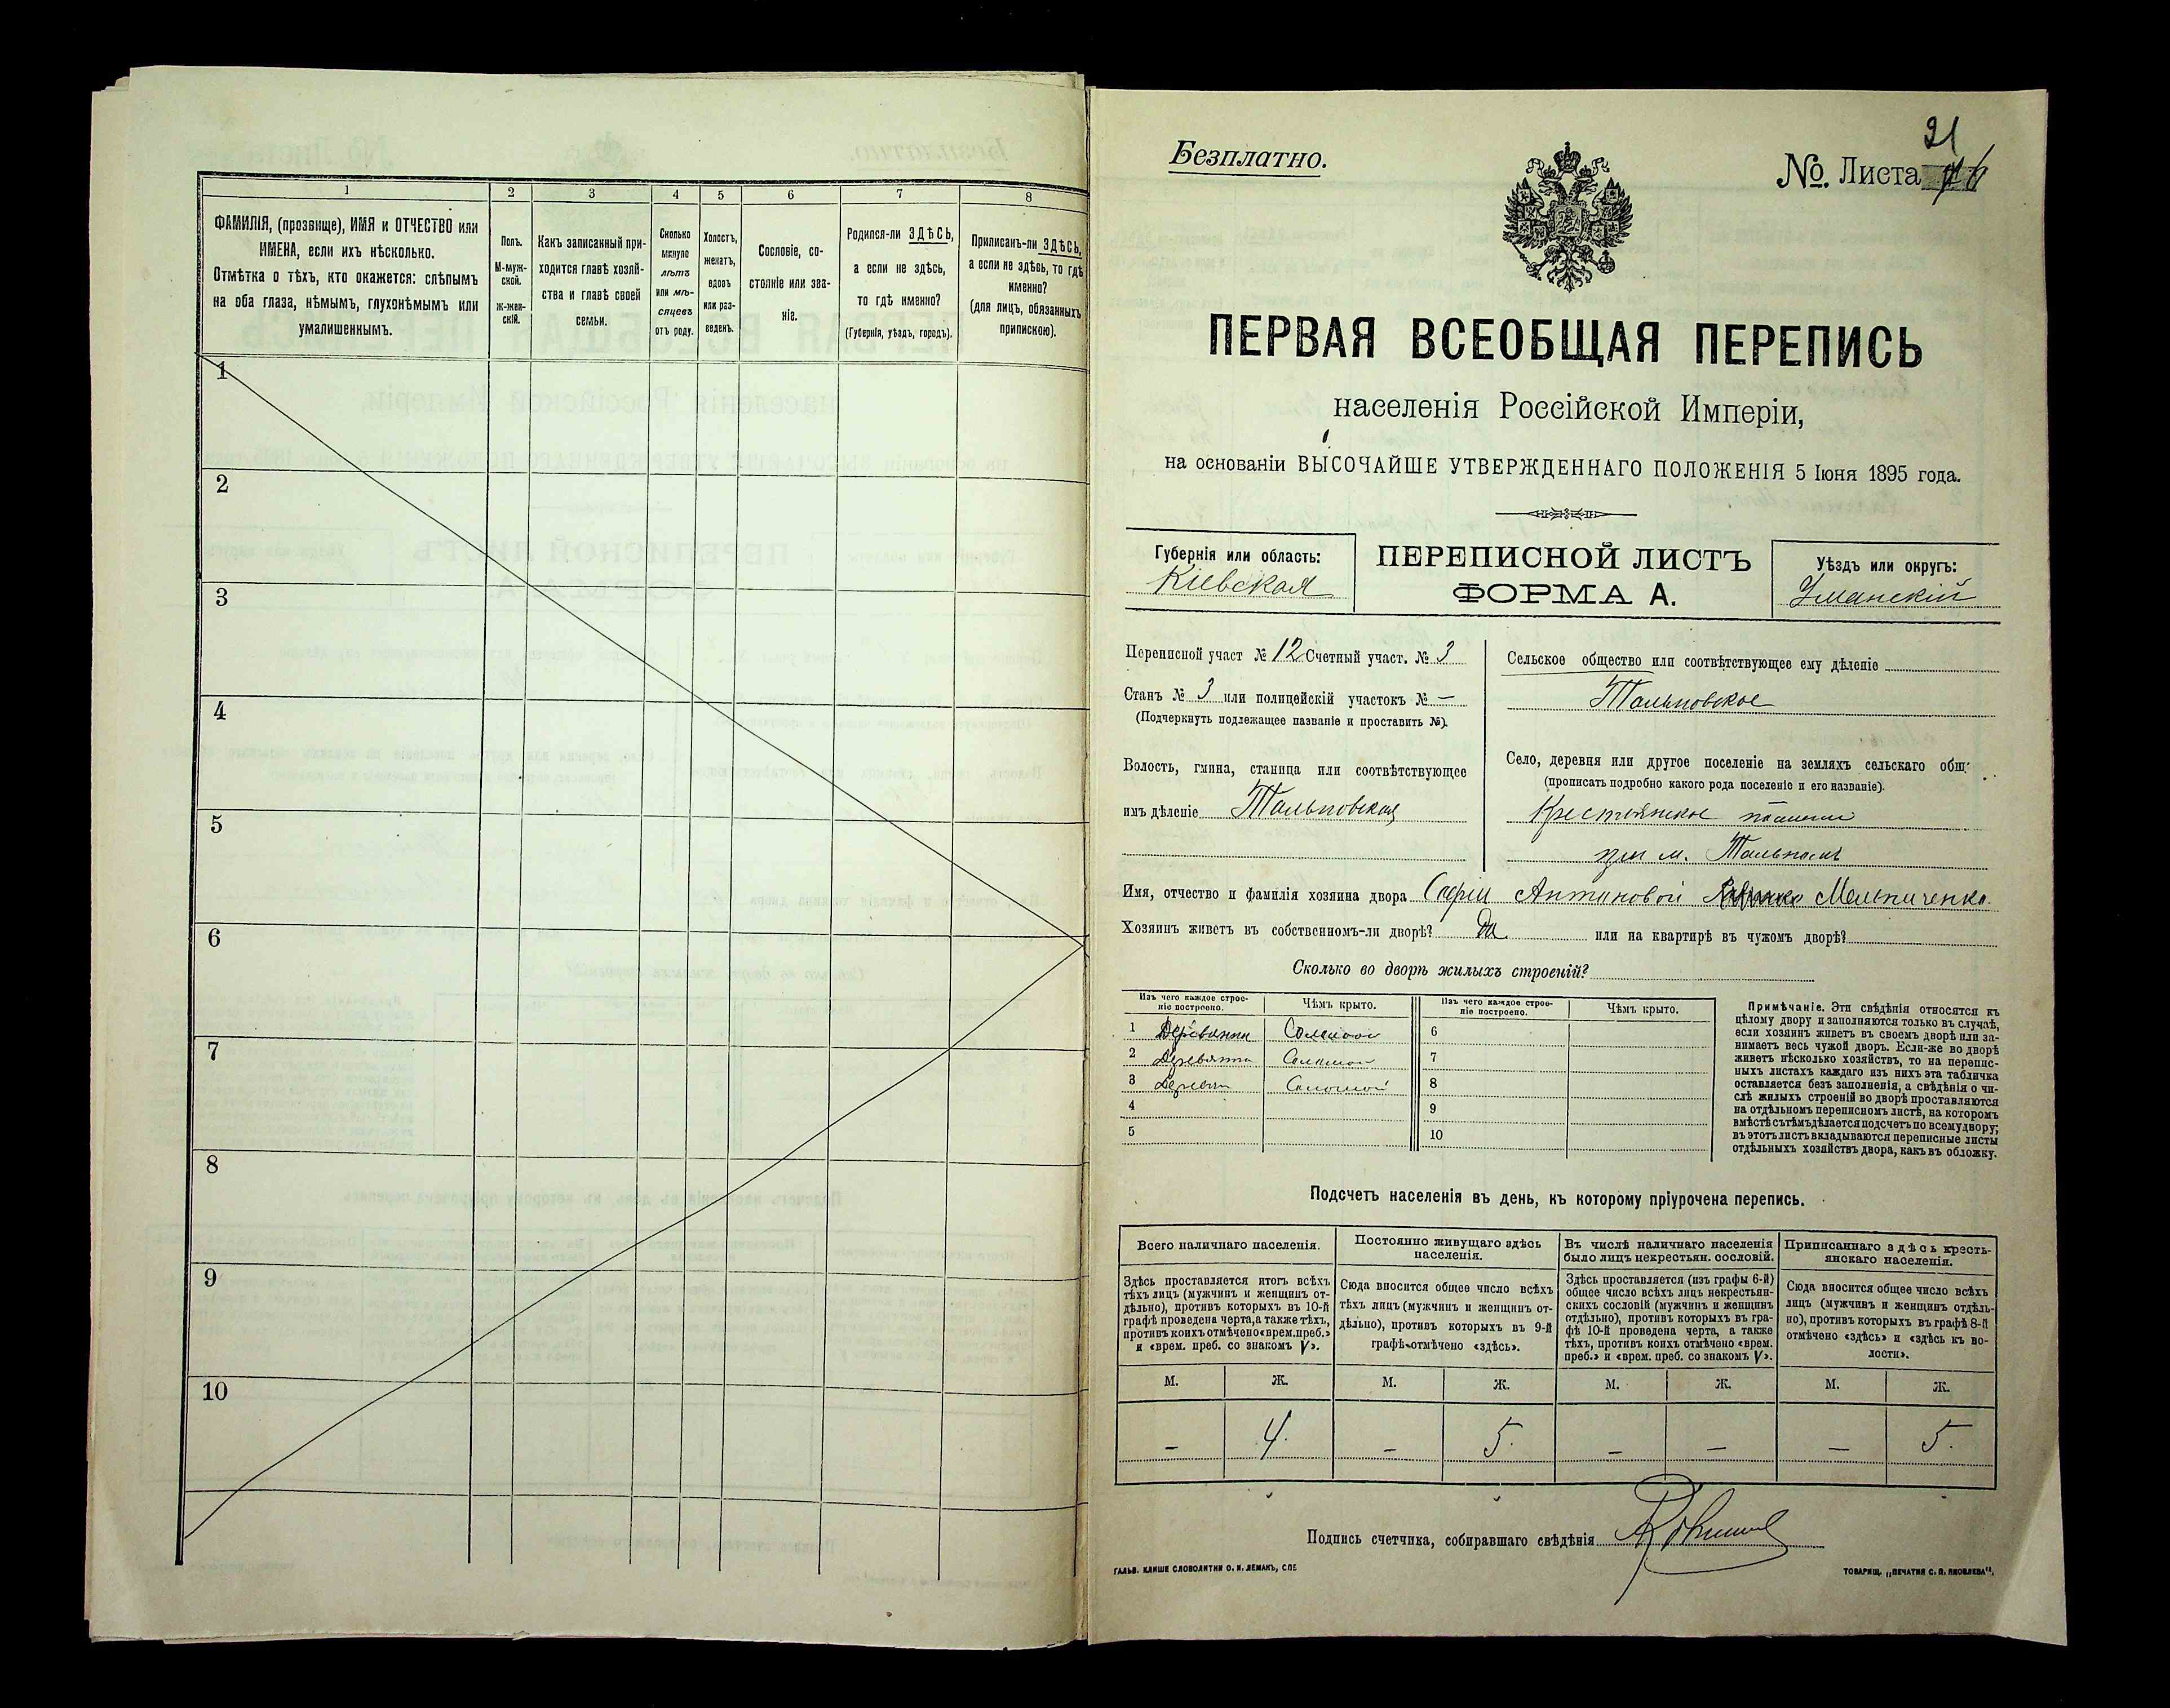 1
2
3
4
5
6
7
8
ФАМИЛІЯ, (прозвище), ИМЯ и ОТЧЕСТВО или
ИМЕНА, если ихъ нѣсколько.
Отмѣтка о тѣхъ, кто окажется: слѣпымъ
на оба глаза, нѣмымъ, глухонѣмымъ или
умалишеннымъ.
Полъ.
М-муж-
ской.
ж-жен-
скій.
Какъ записанный при-
ходится главѣ хозяй-
ства и главѣ своей
семьи.
Сколько
минуло
лѣтъ
или мѣ-
сяцевъ
отъ роду.
Холостъ,
женатъ,
вдовъ
или раз-
веденъ.
Сословіе, со-
стояніе или зва-
ніе.
Родился-ли ЗДѢСЬ,
а если не здѣсь,
то гдѣ именно?
(Губернія, уѣздъ, городъ).
Приписанъ-ли ЗДѢСЬ,
а если не здѣсь, то гдѣ
именно?
(для лицъ, обязанныхъ
припискою).
1
2
3
4
5
6
7
8
9
10
Безплатно.
21
№. Листа
ПЕРВАЯ ВСЕОБЩАЯ ПЕРЕПИСЬ
населенія Россійской Имперіи,
на основаніи ВЫСОЧАЙШЕ УТВЕРЖДЕННАГО ПОЛОЖЕНІЯ 5 Іюня 1895 года.
Губернія или область:
Кіевская
ПЕРЕПИСНОЙ ЛИСТЪ
ФОРМА А.
Уѣздъ или округъ:
Уманскій
Переписной участ № 12 Счетный участ. № 3
Станъ № 3 или полицейскій участокъ № —
(Подчеркнуть подлежащее названіе и проставить №).
Волость, гмина, станица или соотвѣтствующее
имъ дѣленіе Тальновская
Сельское общество или соотвѣтствующее ему дѣленіе
Тальновское
Село, деревня или другое поселеніе на земляхъ сельскаго общ:
(прописать подробно какого рода поселеніе и его названіе).
Крестьянское
при м. Тальномъ
Имя, отчество и фамилія хозяина двора Софіи Антоновой Мельниченко.
Хозяинъ живетъ въ собственномъ-ли дворѣ? Да или на квартирѣ въ чужомъ дворѣ?
Сколько во дворѣ жилыхъ строеній?
Изъ чего каждое строе-
ніе построено.
Чѣмъ крыто.
Изъ чего каждое строе-
ніе построено.
Чѣмъ крыто.
1 Деревянн Соломой
2 Деревянн Соломой
3 Деревян Соломой
4
5
6
7
8
9
10
Примѣчаніе. Эти свѣдѣнія относятся къ
цѣлому двору и заполняются только въ случаѣ,
если хозяинъ живетъ въ своемъ дворѣ или за-
нимаетъ весь чужой дворъ. Если-же во дворѣ
живетъ нѣсколько хозяйствъ, то на перепис-
ныхъ листахъ каждаго изъ нихъ эта табличка
оставляется безъ заполненія, а свѣдѣнія о чи-
слѣ жилыхъ строеній во дворѣ проставляются
на отдѣльномъ переписномъ листѣ, на которомъ
вмѣстѣ съ тѣмъ дѣлается подсчетъ по всему двору;
въ этотъ листъ вкладываются переписные листы
отдѣльныхъ хозяйствъ двора, какъ въ обложку.
Подсчетъ населенія въ день, къ которому пріурочена перепись.
Всего наличнаго населенія.
Постоянно живущаго здѣсь
населенія.
Въ числѣ наличнаго населенія
было лицъ некрестьян. сословій.
Приписаннаго здѣсь кресть-
янскаго населенія.
Здѣсь проставляется итогъ всѣхъ
тѣхъ лицъ (мужчинъ и женщинъ от-
дѣльно), противъ которыхъ въ 10-й
графѣ проведена черта, а также тѣхъ,
противъ коихъ отмѣчено «врем. преб.»
и «врем. преб. со знакомъ V».
Сюда вносится общее число всѣхъ
тѣхъ лицъ (мужчинъ и женщинъ от-
дѣльно), противъ которыхъ въ 9-й
графѣ отмѣчено «здѣсь».
Здѣсь проставляется (изъ графы 6-й)
общее число всѣхъ лицъ некрестьян-
скихъ сословій (мужчинъ и женщинъ
отдѣльно), противъ которыхъ въ гра-
фѣ 10-й проведена черта, а также
тѣхъ, противъ коихъ отмѣчено «врем.
преб.» и «врем. преб. со знакомъ V».
Сюда вносится общее число всѣхъ
лицъ (мужчинъ и женщинъ отдѣль-
но), противъ которыхъ въ графѣ 8-й
отмѣчено «здѣсь» и «здѣсь къ во-
лости».
М. Ж. М. Ж. М. Ж. М. Ж.
— 4. — 5. — — — 5.
Подпись счетчика, собиравшаго свѣдѣнія
ГАЛЬВ. КЛИШЕ СЛОВОЛИТНИ О. И. ЛЕМАНЪ, СПБ
ТОВАРИЩ. „ПЕЧАТНЯ С. П. ЯКОВЛЕВА",